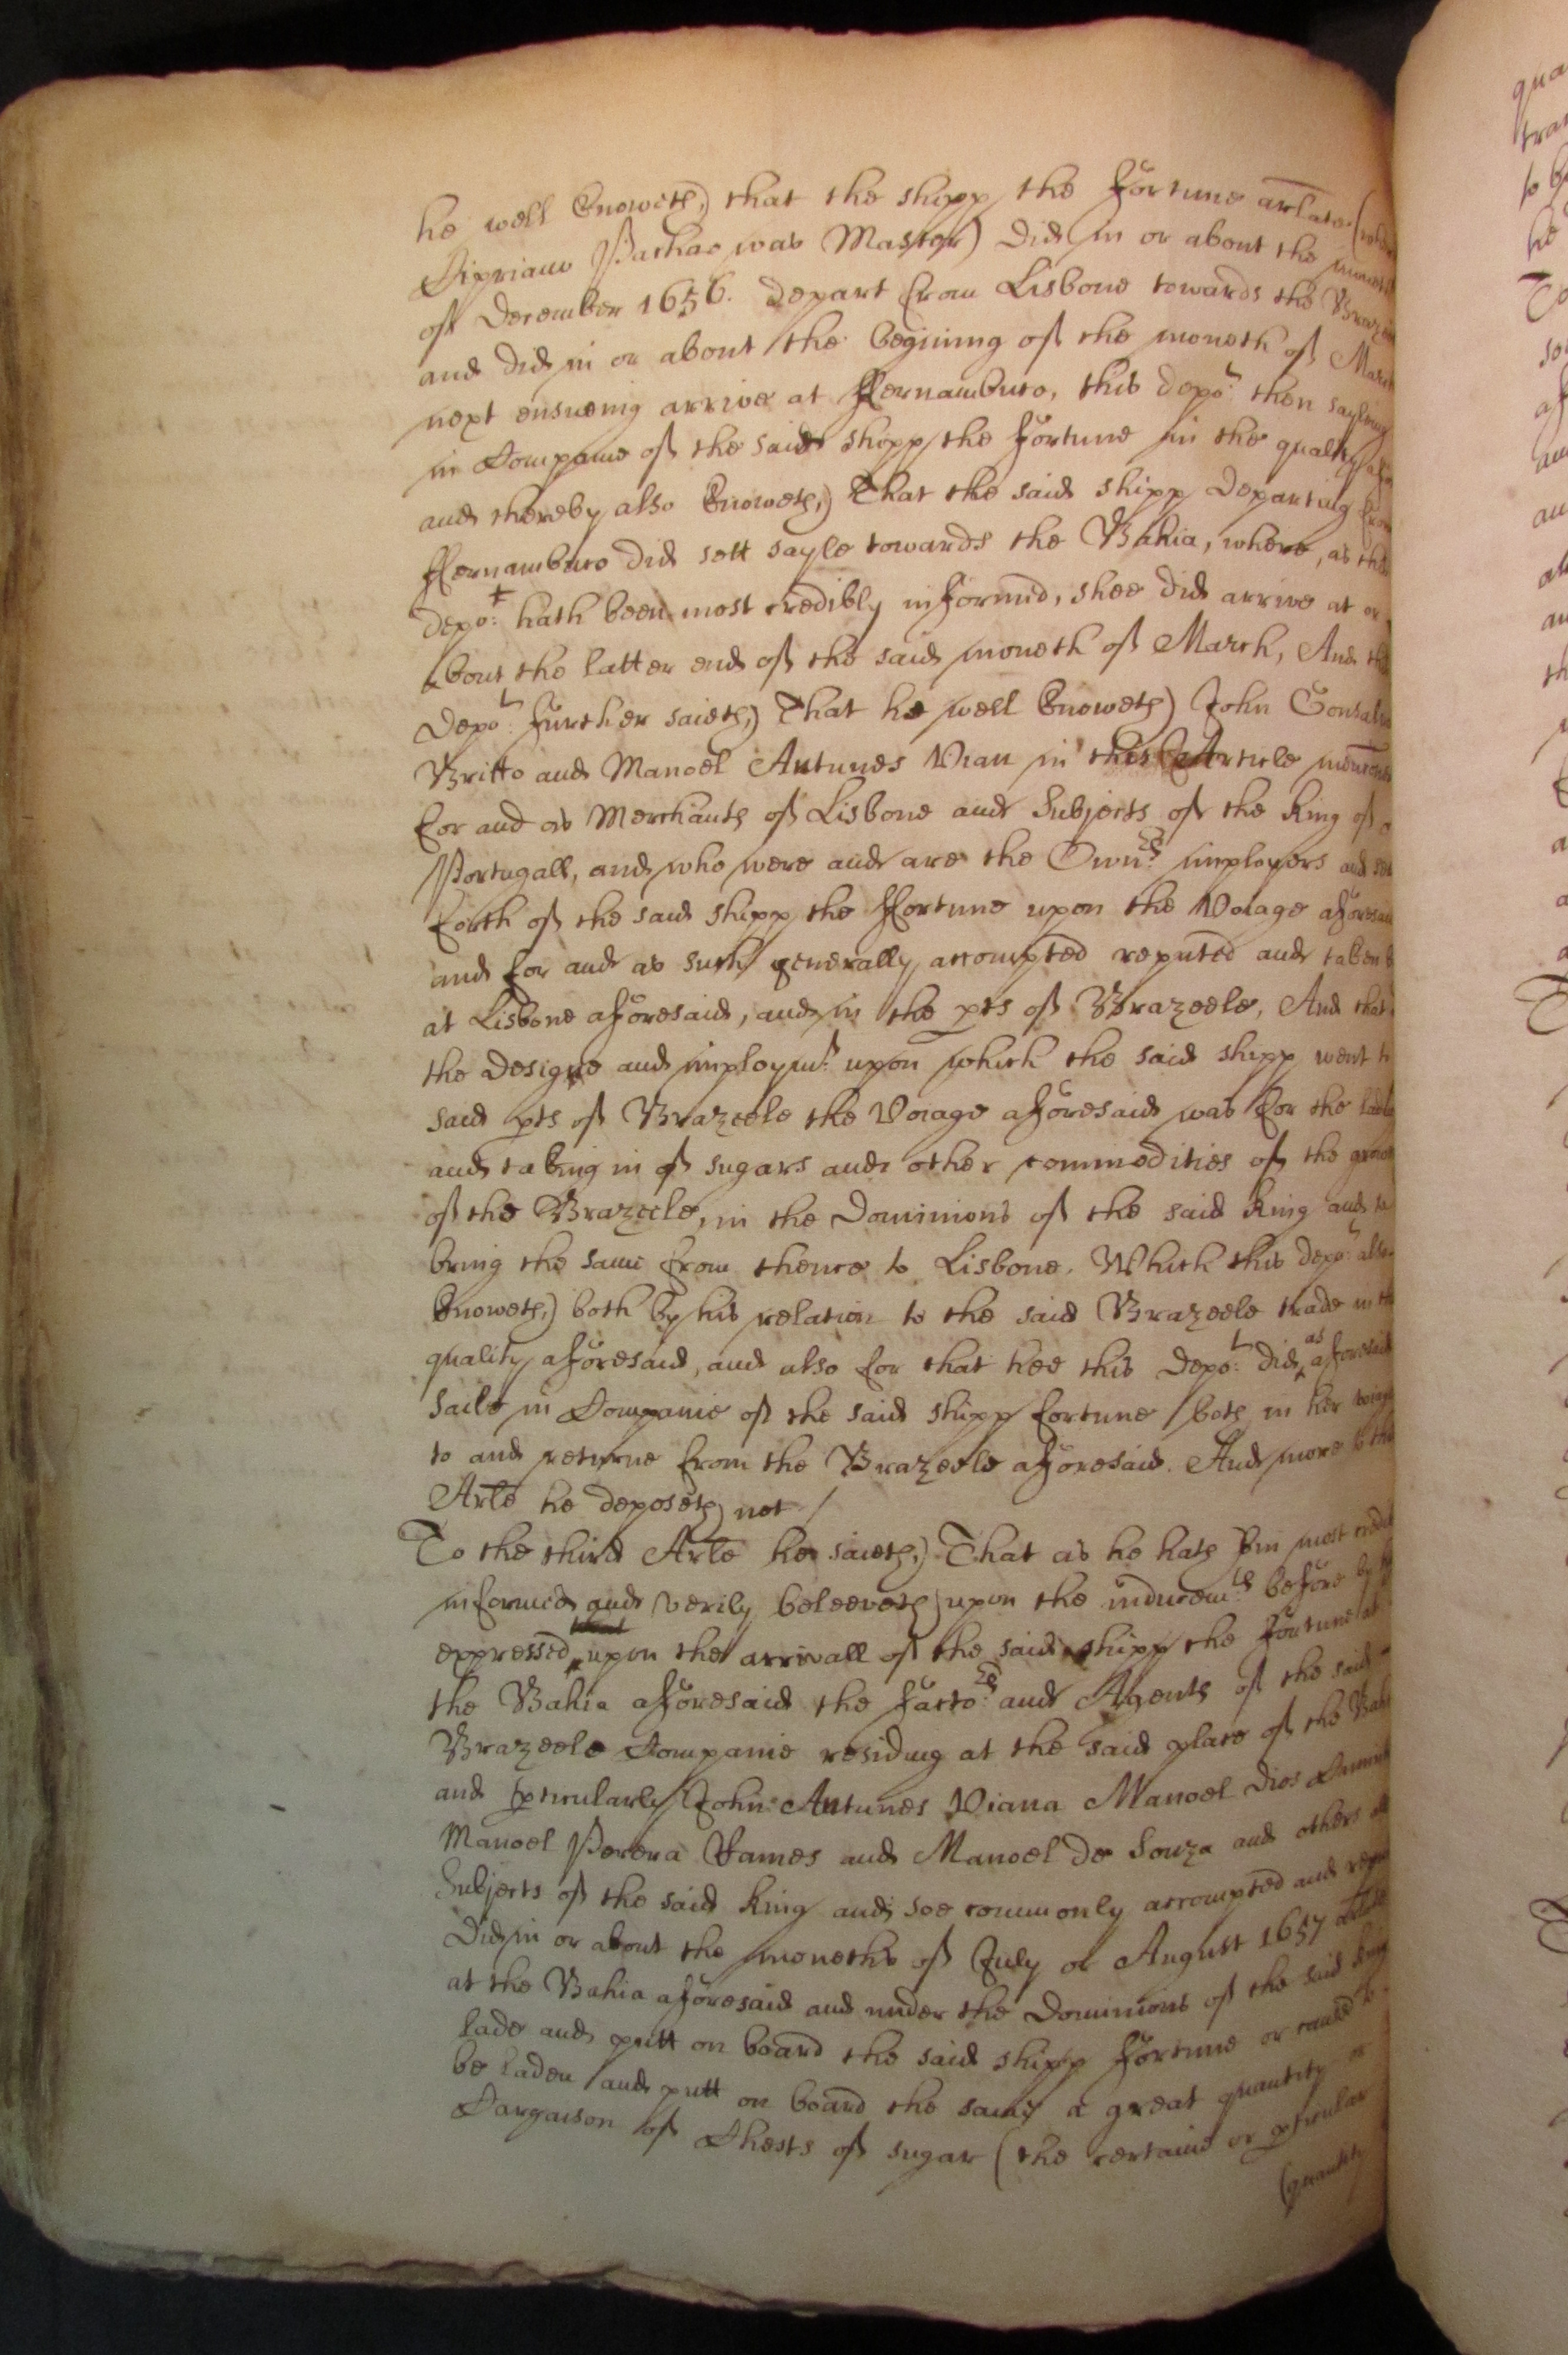 he well knoweth, that the shipp the Fortune arlate (
Cipriano Pachao was Master) did in or about the moneth
of December 1656. depart from Lisbone towards the Braze
and did in or about the begining of the moneth of March
next ensueing arrive at Fernambuco, this depo:t then sayling
in Companie of the said shipp the Fortune in the quality
and thereby also knoweth, That the said shipp departing from
Fernambuco did sett sayle towards the Bahia, where, as this
depo:t hath been most credibly informed, shee did arrive at or
about the latter end of the said moneth of March, And this
depo:t further saieth, That he well knoweth John Gonsalvo
Britto and Manoel Antunes Vian in this Article menconed
for and as Merchants of Lisbone and Subjects of the King of
Portugall, and who were and are the Own:rs imployers and set
forth of the said shipp the Fortune upon the Voiage aforesaid
and for and as such generally accompted reputed and taken b
at Lisbone aforesaid, and in the pts of Brazeele, And that
the designe and imploym:t upon which the said shipp went to
said pts of Brazeele the Voiage aforesaid was for the lad
and taking in of sugars and other commodities of the grow
of the Brazeele, in the Dominions of the said King and to
bring the same from thence to Lisbone. Which this depo:t also
knoweth, both by his relation to the said Brazeele trade in the
quality aforesaid, and also for that hee this depo:t did as aforesaid
saile in Companie of the said shipp Fortune both in her voiage
to and returne from the Brazeele aforesaid. And more to this
Arle he deposeth not /
To the third Arle he saieth, That as he hath bin most credib
informed and verily beleeveth upon the inducem:ts before by h
expressed, upon the arrivall of the said shipp the Fortune at
the Bahia aforesaid the Facto:rs and Agents of the said
Brazeele Companie residing at the said place of the Bahi
and pticularly John Antunes Viana Manoel Dios
Manoel Perera Rames and Manoel de Souza and others all
Subjects of the said King and soe commonly accompted and repu
Did in or about the moneths of July or August 1657 arlate
at the Bahia aforesaid and under the Dominions of the said King
lade and putt on board the said shipp Fortune or caused to
be laden and putt on board the same a great quantity or
Cargaison of Chests of sugar (the certaine or pticular
(quantity